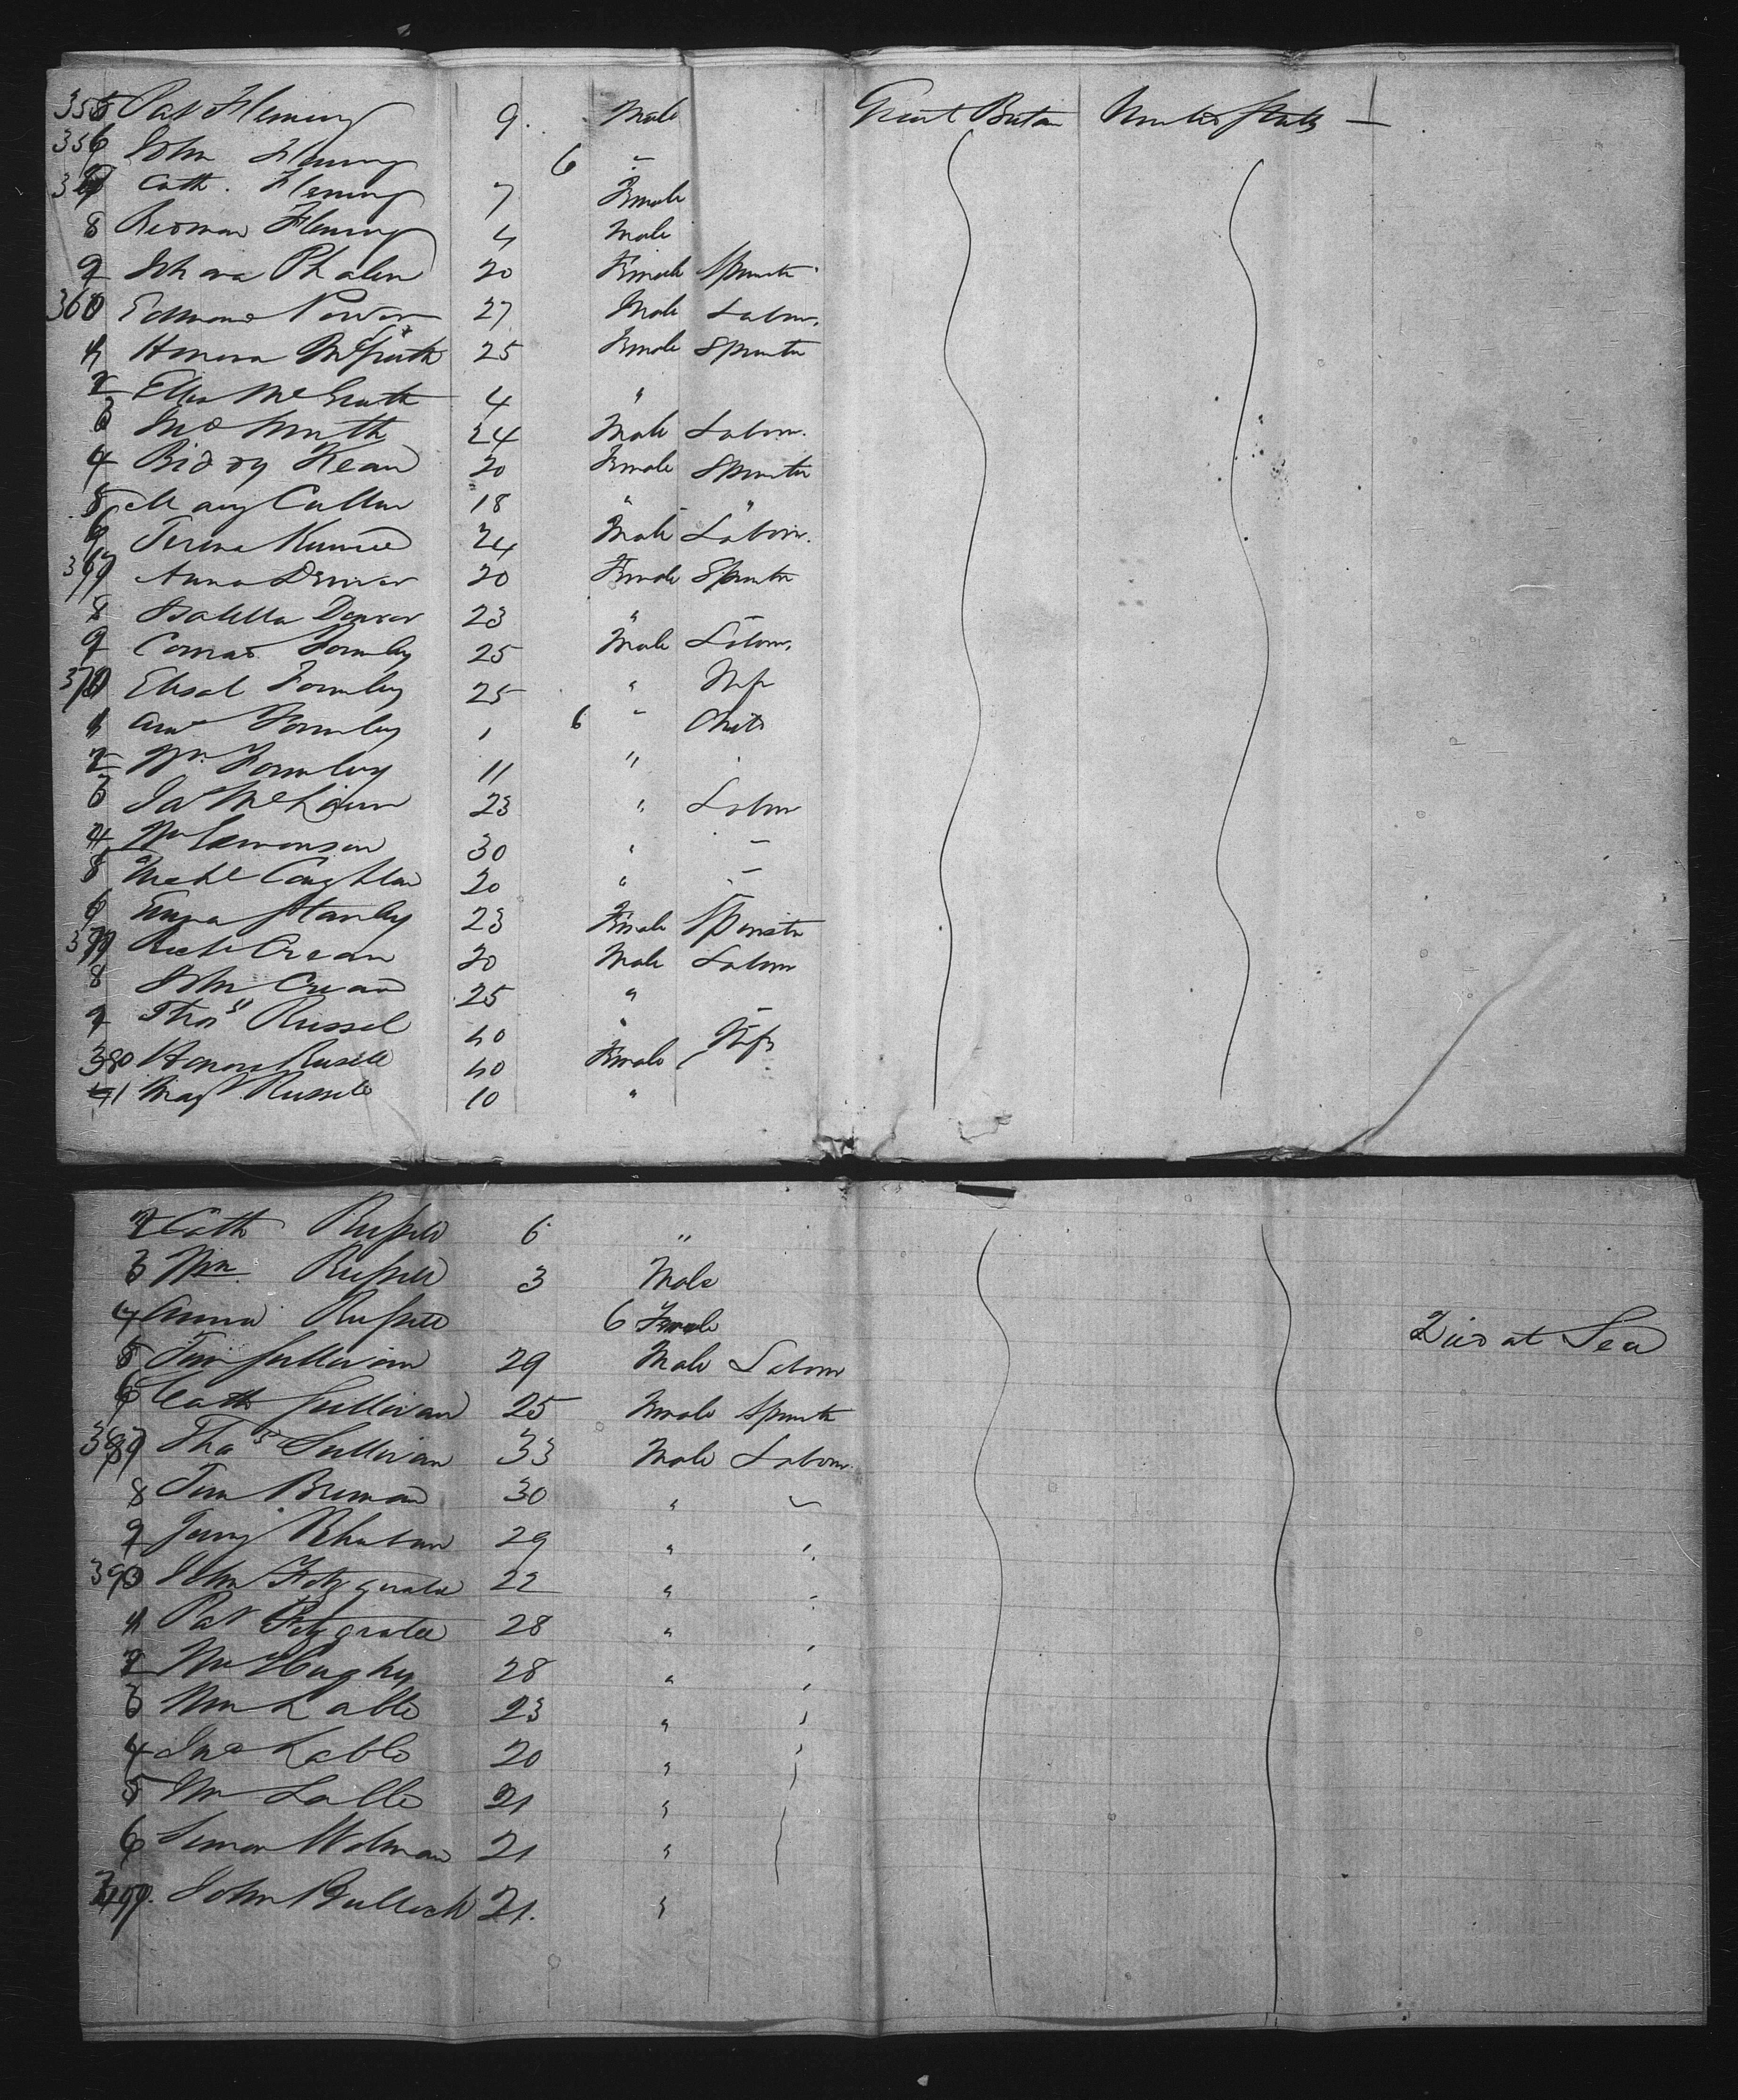 355 Pat Fleming 9 Male Great Britan United States —
356 John Fleming 6 "
Cath. Fleming 7 Female
8 Redman Fleming 4 Male
9 Johana Phalen 20 Female Spinster
360 Edmond Power 27 Male Labour.
1 Honora McGrath 25 Female Spinster
2 Ellen McGrath 4 "
3 Jno Smith 24 Male Labour.
4 Biddy Kean 20 Female Spinster
5 Mary Cullen 18 " "
6 24 Male Labour.
367 Anna Denver 20 Female Spinster
8 Isabella Denver 23 " "
9 Conrad Formley 25 Male Labour.
370 Elisab Formley 25 " Wife
1 Ann Formley 1 6 " Child
2 Wm. Formley 11 " "
3 Jas 23 " Labour
4 Wm Edmonson 30 " "
5 Michl Coughlan 20 " "
6 Emma Stanley 23 Female Spinster
377 Richd Crean 20 Male Labour
8 John Crean 25 "
9 Thos Russel 40 " "
380 Honora Russell 40 Female Wife
1 Magt Russell 10 "
2 Cath Russell 6 "
3 Wm. Russell 3 Male
4 Anna Russell 6 Female Died at Sea
5 Tim Sullivan 29 Male Labour
6 Cath Sullivan 25 Female Spinster
387 Thos Sullivan 33 Male Labour.
8 Tim Brennan 30 " "
9 Jerry 29 " "
390 John Fitzgerald 22 " "
1 Pat Fitzgerald 28 " "
2 Wm Hughes 28 " "
3 Wm Lalle 23 " "
4 Jno Lalle 20 " "
5 Wm Lalle 21 "
6 Simon 21 "
397. John Bullock 21. "